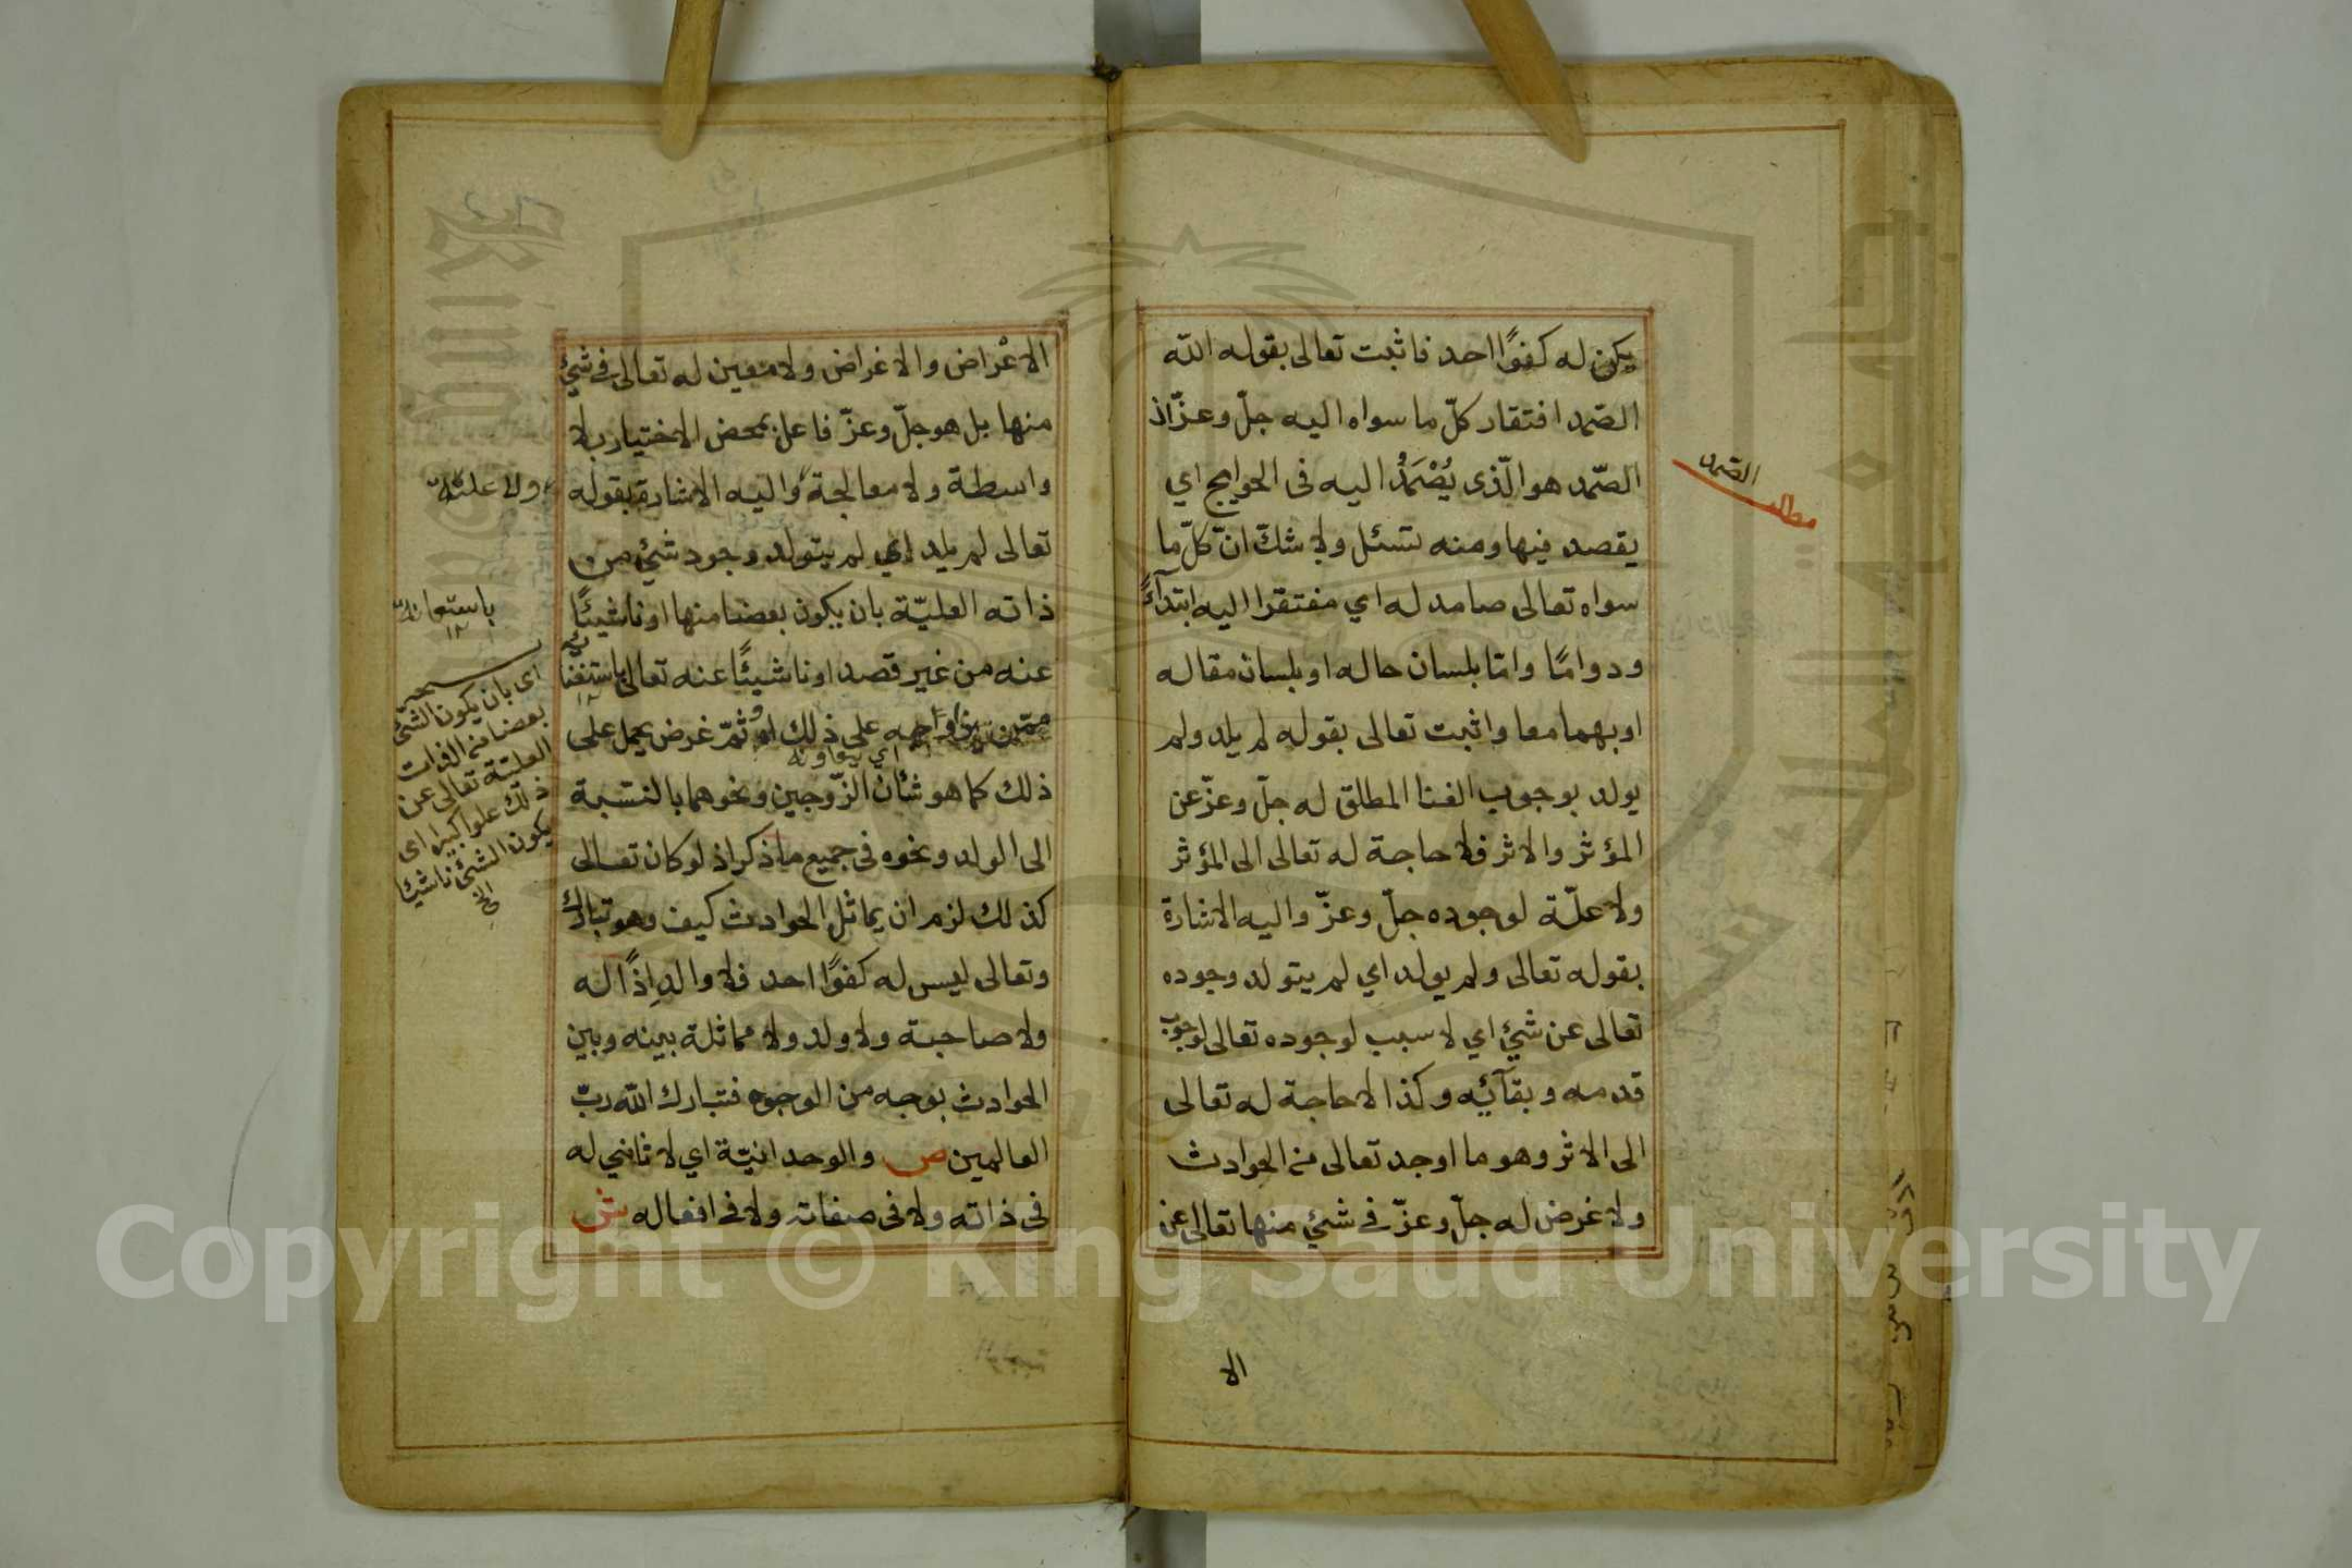 يكن له كفوًا احد فاثبت تعالى بقوله الله
الصّمد افتقار كلّ ما سواه اليه جلّ وعزّ اذ
الصّمد هو الّذى يُصْمَدُ اليه فى الحوايج اي
يقصد فيها ومنه تسئل ولا شكّ انّ كلّ ما
سواه تعالى صامد له اي مفتقرا اليه ابتدآءً
ودوامًا وامّا بلسان حاله او بلسان مقاله
او بهما معا واثبت تعالى بقوله لم يلد ولم
يولد بوجوب الغنا المطلق له جلّ وعزّ عن
المؤثر والاثر فلا حاجة له تعالى الى المؤثر
ولا علّة لوجوده جلّ وعزّ واليه الاشارة
بقوله تعالى ولم يولد اي لم يتولد وجوده
تعالى عن شئ اي لا سبب لوجوده تعالى لوجوب
قدمه وبقآئه وكذا لا حاجة له تعالى
الى الاثر وهو ما اوجد تعالى من الحوادث
ولا غرض له جلّ وعزّ فى شئ منها تعالى عن
الا
الصّمد
مطلب
الاعْراض والاغراض ولا معين له تعالى فى شئ
منها بل هو جلّ وعزّ فاعل بمحض الاختيار بلا
واسطة ولا معالجة واليه الاشارة بقوله
تعالى لم يلد اي لم يتولد وجود شئ من
ذاته العليّة بان يكون بعضا منها او ناشيئًا
عنه من غير قصد او ناشيئًا عنه تعالى
على ذلك او ثمّ غرض يحمل على
اي يعاونه
ذلك كما هو شأن الزّوجين ونحوهما بالنّسبة
الى الولد ونحوه فى جميع ما ذكر اذ لو كان تعالى
كذلك لزم ان يماثل الحوادث كيف وهو تبارك
وتعالى ليس له كفوًا احد فلا والد اذًا له
ولا صاحبة ولا ولد ولا مماثلة بينه وبين
الحوادث بوجه من الوجوه فتبارك الله ربّ
العالمين ص والوحدانيّة اي لا ثاني له
فى ذاته ولا فى صفاته ولا فى افعاله ش
ولا علّة
باستعانة
اى بان يكون الشئ
بعضا من الذات
العليّة تعالى عن
ذلك علوا كبيرا اى
يكون الشئ ناشيئا
الخ
Copyright © King Saud University